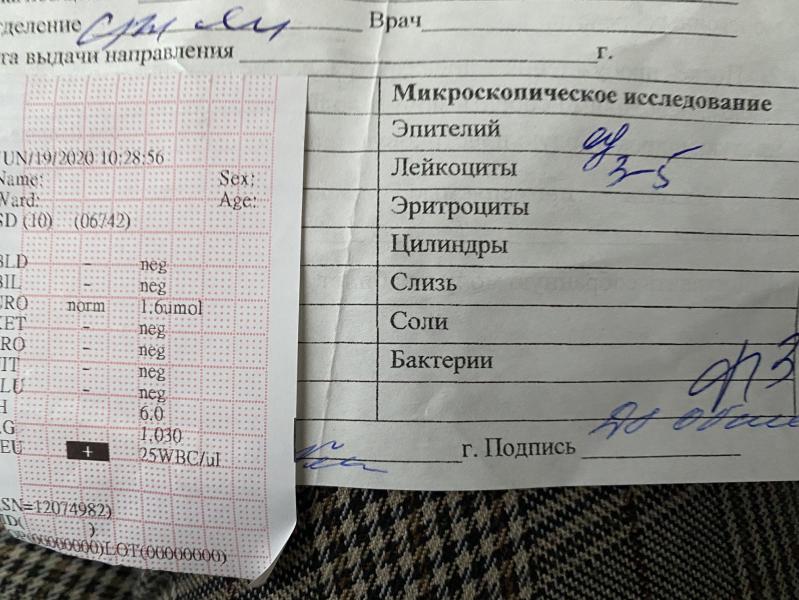 тделение
Врач
та выдачи направления г.
Микроскопическое исследование
Эпителий ед
Лейкоциты 3-5
Эритроциты
Цилиндры
Слизь
Соли
Бактерии
г. Подпись
JUN/19/2020 10:28:56
Name: Sex:
Ward: Age:
SD (10) (06742)
BLD - neg
BIL - neg
URO norm 1.6umol
KET - neg
PRO - neg
NIT - neg
GLU - neg
H 6.0
.G 1.030
EU + 25WBC/ul
SN=12074982)
ID( )
(00000000)LOT(00000000)